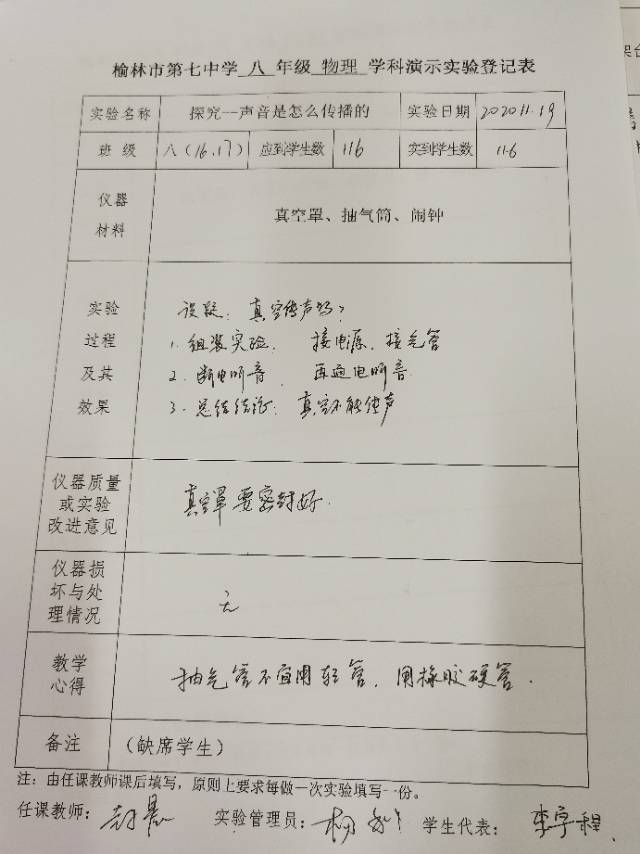 榆林市第七中学 八 年级 物理 学科演示实验登记表
实验名称 探究--声音是怎么传播的 实验日期 2020 11.19
班级 八(16.17) 应到学生数 116 实到学生数 116
仪器材料 真空罩、抽气筒、闹钟
实验过程及其效果
设疑: 真空传声吗?
1. 组装实验. 接电源. 接气管
2. 断电听音. 再通电听音
3. 总结结论: 真空不能传声
仪器质量或实验改进意见 真空罩要密封好.
仪器损坏与处理情况 无
教学心得 抽气管不宜用软管, 用橡胶硬管.
备注 (缺席学生)
注:由任课教师课后填写,原则上要求每做一次实验填写一份。
任课教师: 实验管理员: 杨 学生代表: 李宇程